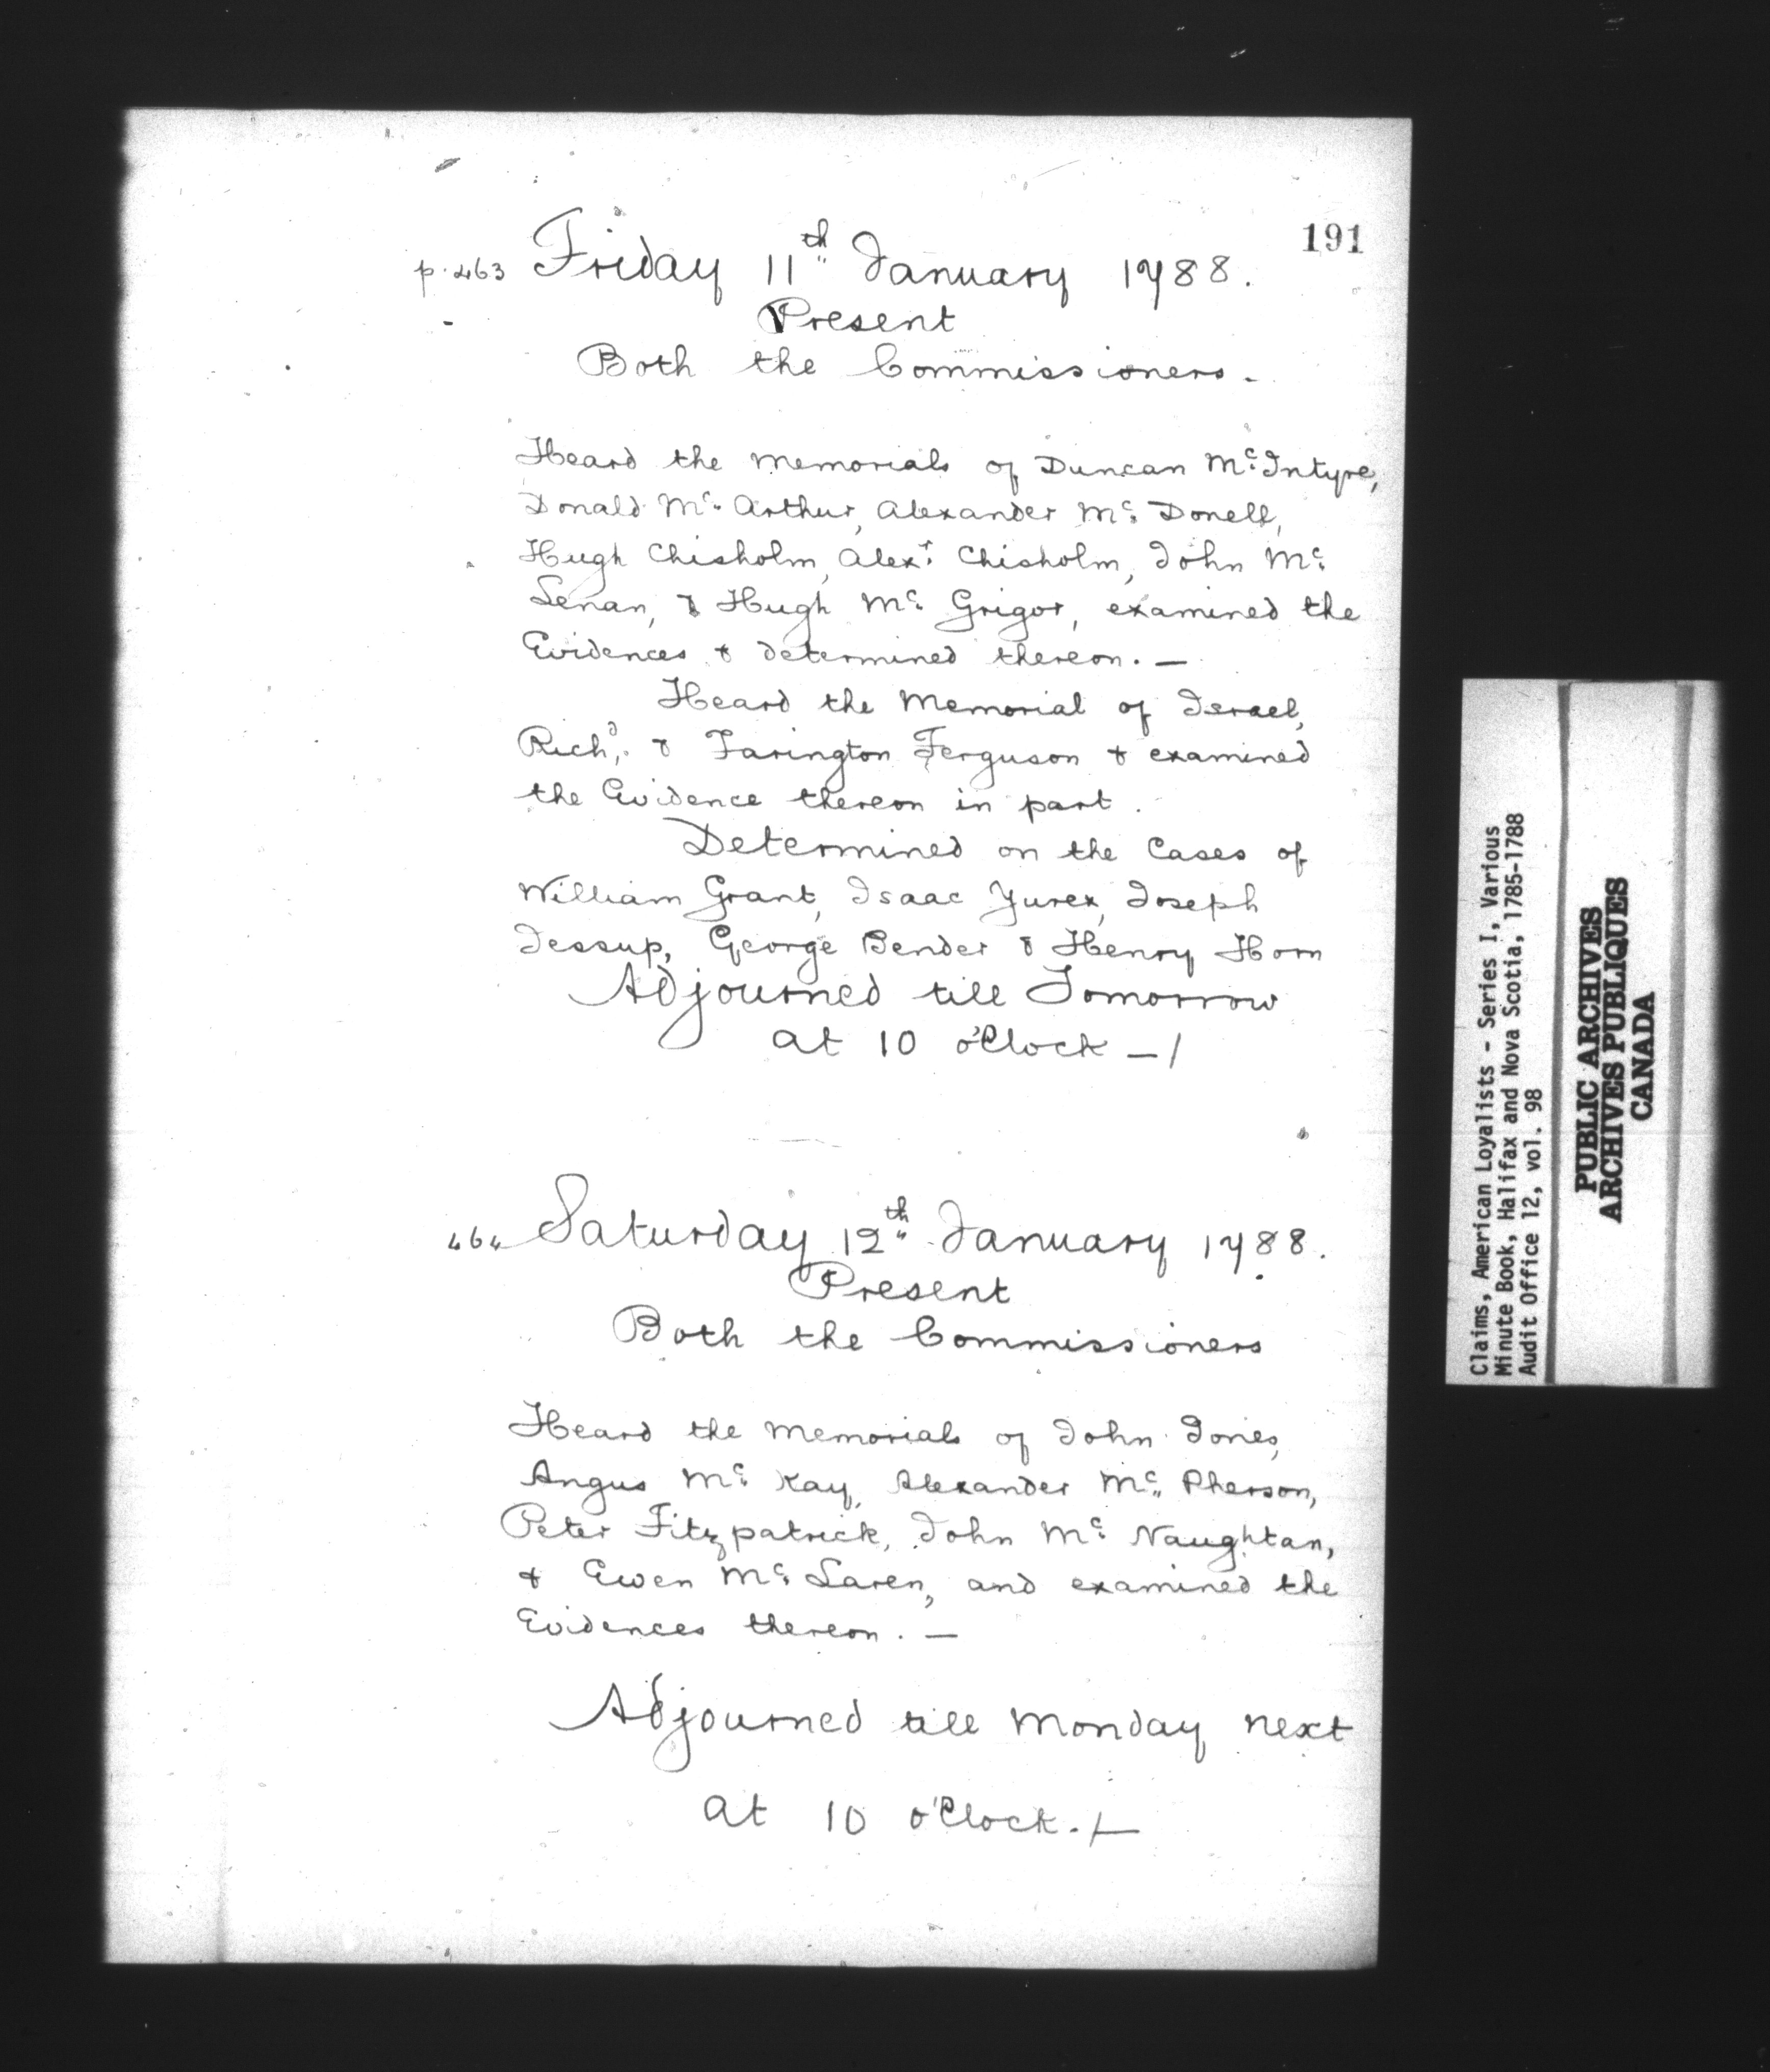 191
p. 463 Friday 11th January 1788.
Present
Both the Commissioners.
Heard the Memorials of Duncan Mc. Intyre,
Donald Mc. Arthur, Alexander Mc. Donell,
Hugh Chisholm, Alexr. Chisholm, John Mc.
Lenan, & Hugh Mc. Grigor, examined the
Evidences & determined thereon. —
Heard the Memorial of Israel,
Richd., & Farington Ferguson & examined
the Evidence thereon in part.
Determined on the Cases of
William Grant, Isaac Yurex, Joseph
Jessup, George Bender & Henry Horn
Adjourned till Tomorrow
at 10 o'Clock —/
464 Saturday 12th January 1788.
Present
Both the Commissioners
Heard the Memorials of John Jones,
Angus Mc. Kay, Alexander Mc. Pherson,
Peter Fitzpatrick, John Mc. Naughtan,
& Ewen Mc. Laren, and examined the
Evidences thereon. —
Adjourned till Monday next
at 10 o'Clock. /—
Claims, American Loyalists - Series I, Various
Minute Book, Halifax and Nova Scotia, 1785-1788
Audit Office 12, vol. 98
PUBLIC ARCHIVES
ARCHIVES PUBLIQUES
CANADA